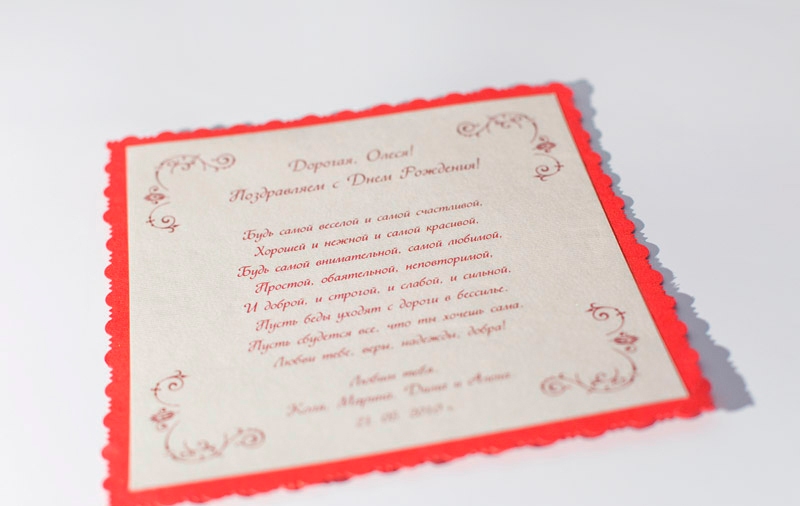 Дорогая, Олеся!
Поздравляем с Днем Рождения!
Будь самой веселой и самой счастливой,
Хорошей и нежной и самой красивой.
Будь самой внимательной, самой любимой,
Простой, обаятельной, неповторимой,
И доброй, и строгой, и слабой, и сильной,
Пусть беды уходят с дороги в бессилье.
Пусть сбудется все, что ты хочешь сама.
Любви тебе, веры, надежды, добра!
Любим тебя.
Марина, и